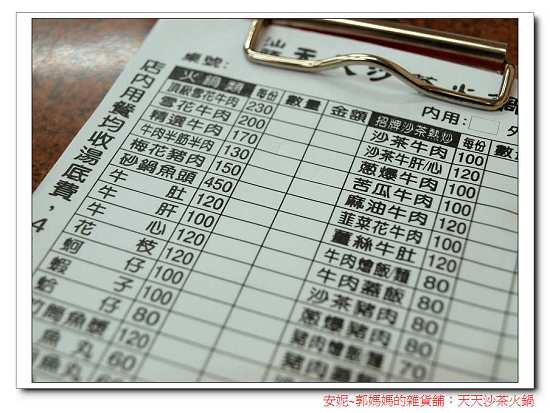 汕頭天天沙茶火鍋
桌號：
內用：
店內用餐均收湯底費，4
火鍋類 每份 數量 金額
頂級雪花牛肉 230
雪花牛肉 200
精選牛肉 170
牛肉半筋半肉 130
梅花豬肉 150
砂鍋魚頭 450
牛肚 120
牛肝 100
牛心 120
花枝 120
蚵仔 100
蝦子 100
蛤仔 80
魚漿 120
魚丸 60
招牌沙茶熱炒 每份 數
沙茶牛肉 100
沙茶牛肝/心 120
蔥爆牛肉 100
苦瓜牛肉 100
麻油牛肉 120
韭菜花牛肉 100
薑絲牛肚 120
牛肉燴飯麵 80
牛肉蓋飯 80
沙茶豬肉 80
蔥爆豬肉 80
豬肉燴飯麵 70
安妮~郭媽媽的雜貨舖：天天沙茶火鍋